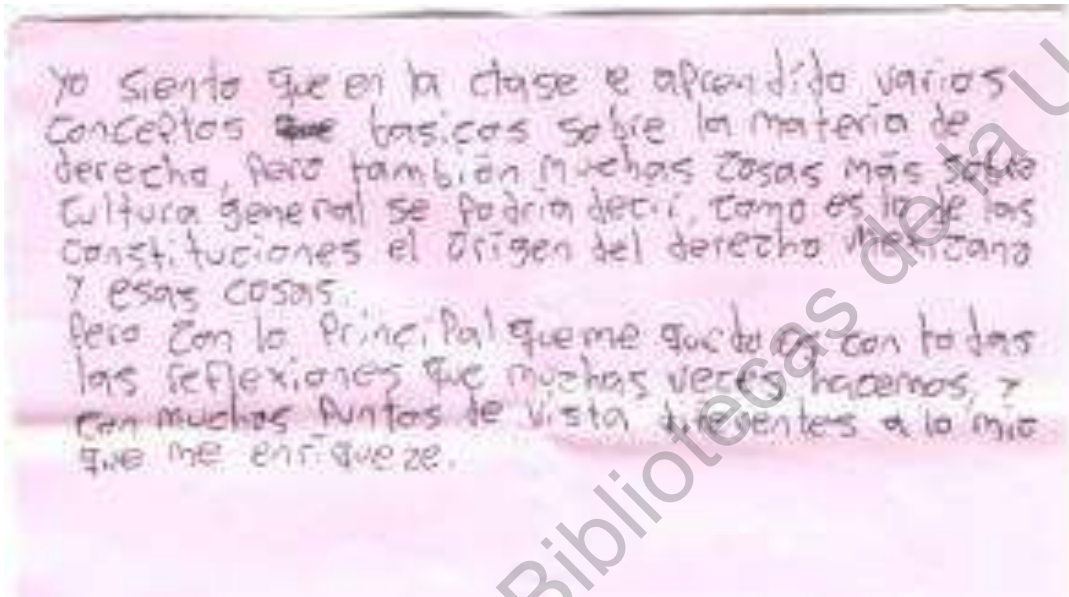 Yo siento que en la clase e aprendido varios
conceptos que basicos sobre la materia de
derecho, pero también muchas cosas más sobre
cultura general se podria decir, como es lo de las
constituciones el origen del derecho mexicano
y esas cosas.
Pero con lo principal que me quedo es con todas
las reflexiones que muchas veces hacemos, y
con muchos puntos de vista diferentes a lo mio
que me enriqueze.
Bibliotecas de la U